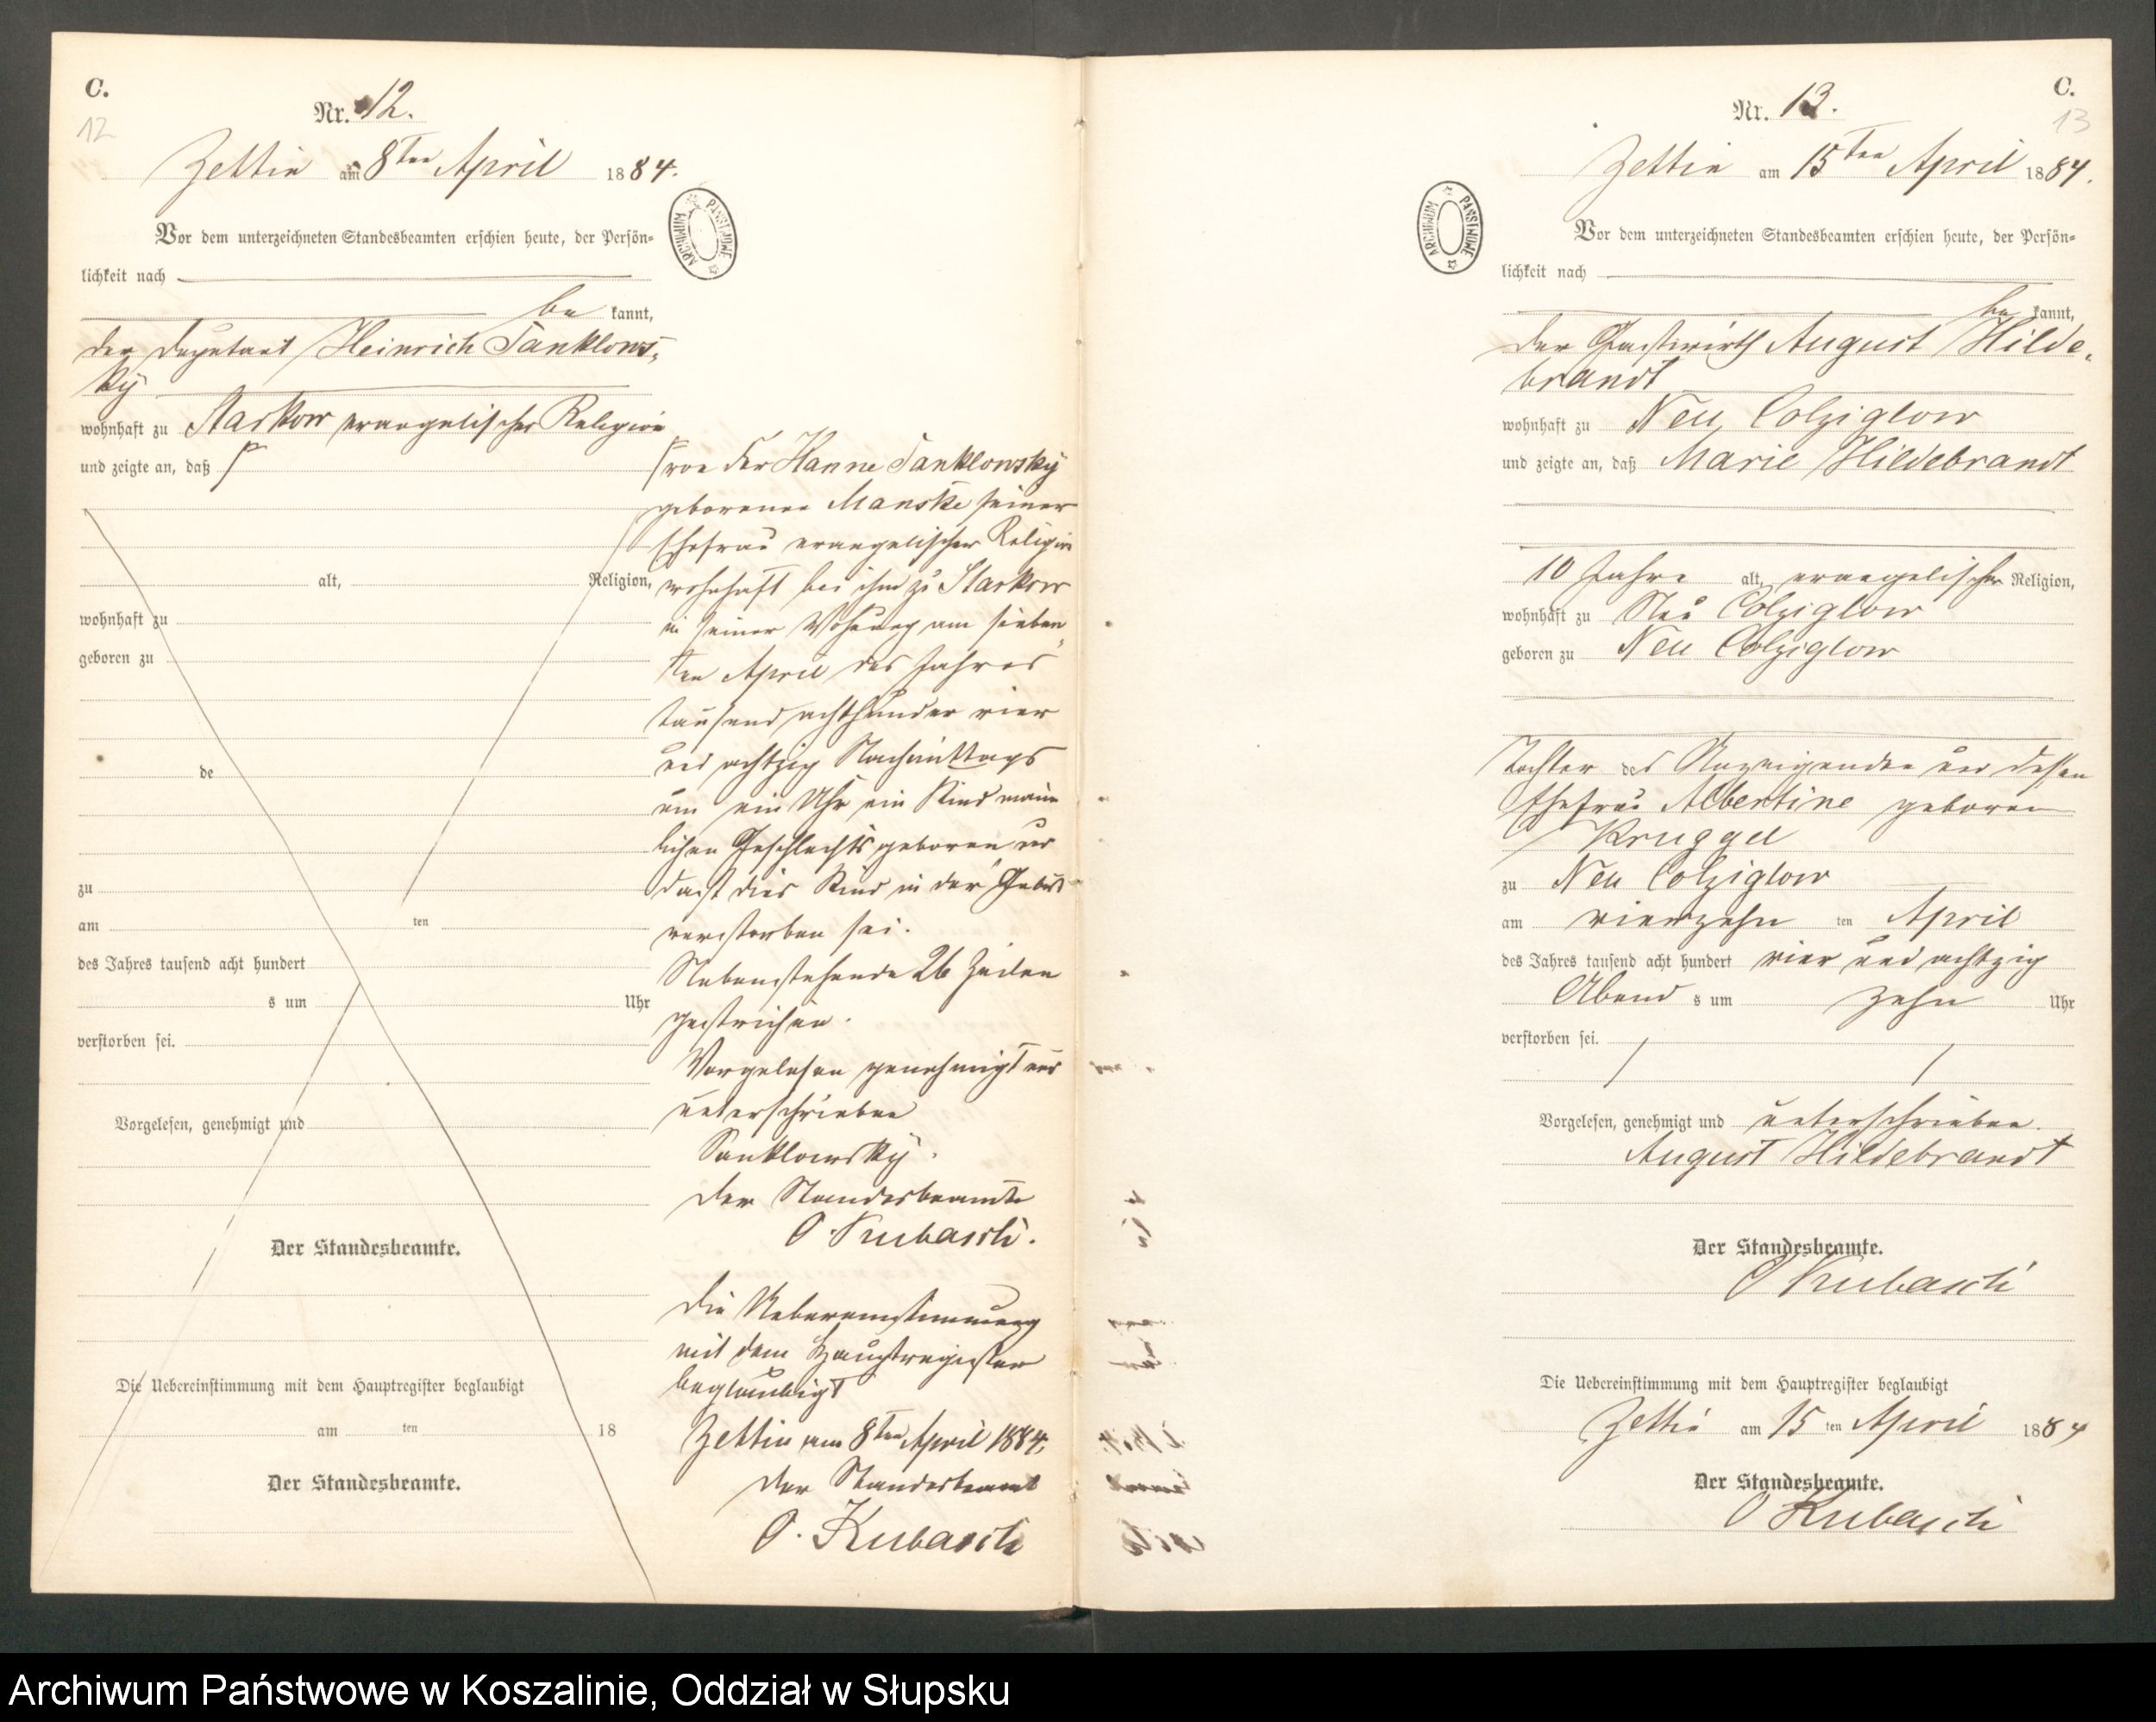 C.
12
Nr. 12.
Zettin am 8ten April 1884.
Vor dem unterzeichneten Standesbeamten erschien heute, der Persön-
lichkeit nach
be kannt,
der Deputant Heinrich Sanklows-
ky
wohnhaft zu Starkow evangelischer Religion
und zeigte an, daß
alt, Religion,
wohnhaft zu
geboren zu
de
zu
am ten
des Jahres tausend acht hundert
s um Uhr
verstorben sei.
Vorgelesen, genehmigt und
Der Standesbeamte.
Die Uebereinstimmung mit dem Hauptregister beglaubigt
am ten 18
Der Standesbeamte.
von der Hanne Sanklowsky
geborenen Manske seiner
Ehefrau evangelischer Religion
wohnhaft bei ihm zu Starkow
in seiner Wohnung am sieben-
ten April des Jahres
tausend achthundert vier
und achtzig Nachmittags
um ein Uhr ein Kind männ
lichen Geschlechts geboren und
daß dies Kind in der Geburt
verstorben sei.
Nebenstehende 26 Zeilen
gestrichen.
Vorgelesen genehmigt und
unterschrieben
Sanklowsky.
Der Standesbeamte
O. Kubasch.
Die Uebereinstimmung
mit dem Hauptregister
beglaubigt
Zettin am 8ten April 1884.
Der Standesbeamte
O. Kubasch
ARCHIWUM PAŃSTWOWE
C.
13
Nr. 13.
Zettin am 15ten April 1884.
Vor dem unterzeichneten Standesbeamten erschien heute, der Persön-
lichkeit nach
be kannt,
der Gastwirth August Hilde-
brandt
wohnhaft zu Neu Colziglow
und zeigte an, daß Marie Hildebrandt
10 Jahre alt, evangelischer Religion,
wohnhaft zu Neu Colziglow
geboren zu Neu Colziglow
Tochter des Anzeigenden und dessen
Ehefrau Albertine geboren
Kruggel
zu Neu Colziglow
am vierzehn ten April
des Jahres tausend acht hundert vier und achtzig
Abend s um zehn Uhr
verstorben sei.
Vorgelesen, genehmigt und unterschrieben.
August Hildebrandt
Der Standesbeamte.
O Kubasch
Die Uebereinstimmung mit dem Hauptregister beglaubigt
Zettin am 15 ten April 1884
Der Standesbeamte.
O Kubasch
ARCHIWUM PAŃSTWOWE
Archiwum Państwowe w Koszalinie, Oddział w Słupsku